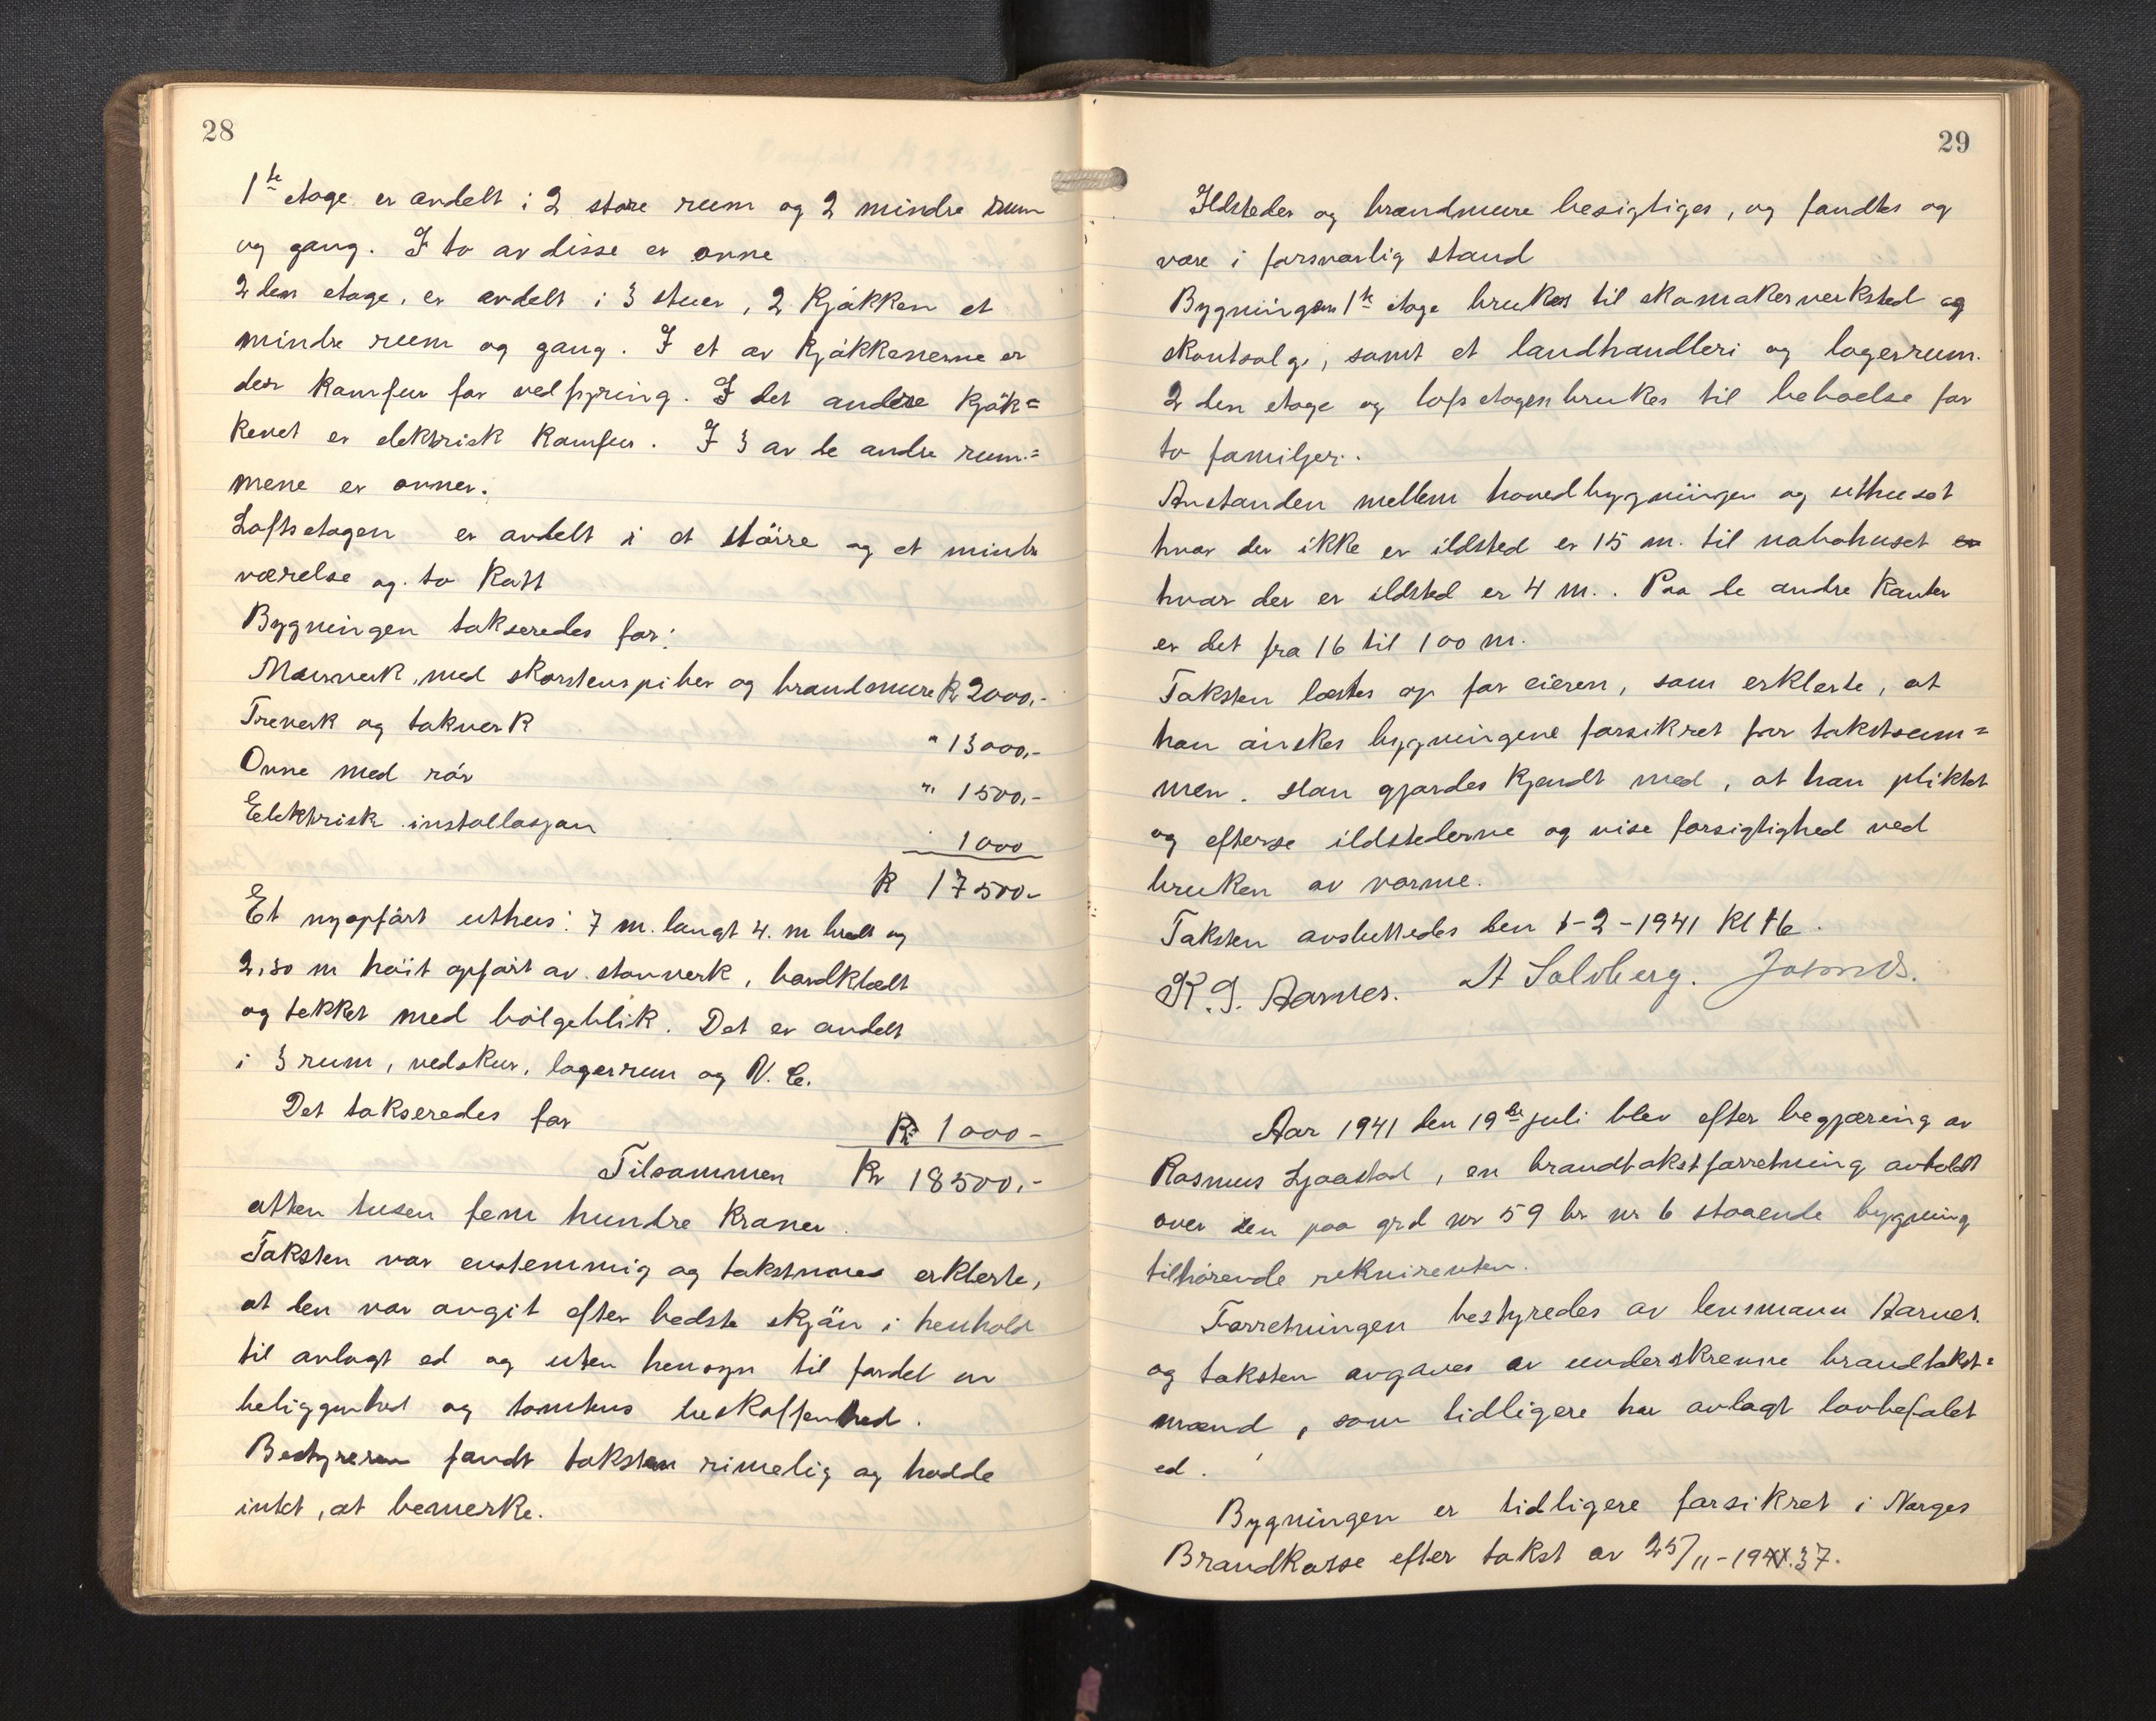 28
1ste etage er avdelt i 2 store rum og 2 mindre rum
og gang. I to av disse er ovne
2den etage, er avdelt i 3 stuer, 2 kjøkken et
mindre rum og gang. I et av kjøkkenerne er
der komfur for vedfyring. I det andre kjøk=
kenet er elektrisk komfur. I 3 av de andre rum=
mene er ovner.
Loftsetagen er avdelt i et større og et mindre
værelse og to kott
Bygningen takseredes for:
Murverk, med skorstenspiber og brandmure Kr 2000,-
Treverk og takverk " 13000,-
Ovne med rør " 1500,-
Elektrisk installasjon 1000
K 17500-
Et nyopført uthus: 7 m. langt 4. m bredt og
2,30 m høit opført av stavverk, bordklædt
og tekket med bølgeblik. Det er avdelt
i 3 rum, vedskur, lagerrum og V. C.
Det takseredes for Kr 1000-
Tilsammen Kr 18500,-
atten tusen fem hundre kroner.
Taksten var enstemmig og takstmænd erklerte,
at den var avgit efter bedste skjøn i henhold
til avlagt ed og uten hensyn til fordel av
beliggenhed og tomtens beskaffenhed.
Bestyreren fandt taksten rimelig og hadde
intet, at bemerke.
29
Ildsteder og brandmure besigtiges, og fandtes og
være i forsvarlig stand
Bygningens 1ste etage brukes til skomakerverksted og
skoutsalg, samt et landhandleri og lagerrum.
2den etage og lofsetagen brukes til beboelse for
to familjer.
Avstanden mellem hovedbygningen og uthuset
hvor der ikke er ildsted er 15 m. til nabohuset er
hvor der er ildsted er 4 m.. Paa de andre kanter
er det fra 16 til 100 m.
Taksten læstes op for eieren, som erklerte, at
han ønsker bygningene forsikret for takstsum=
men. Han gjordes kjendt med, at han pliktet
og efterse ildstederne og vise forsigtighed ved
bruken av varme.
Taksten avsluttedes den 1-2-1941 Kl 16.
K. J. Aarnes. A Solvberg.
Aar 1941 den 19de juli blev efter begjæring av
Rasmus Ljoastad, en brandtakstforretning avholdt
over den paa grd nr 59 br nr 6 staaende bygning
tilhørende rekvirenten.
Forretningen bestyredes av lensmann Aarnes.
og taksten avgaves av underskrevne brandtakst=
mænd, som tidligere har avlagt lovbefalet
ed.
Bygningen er tidligere forsikret i Norges
Brandkasse efter takst av 25/11-1937.